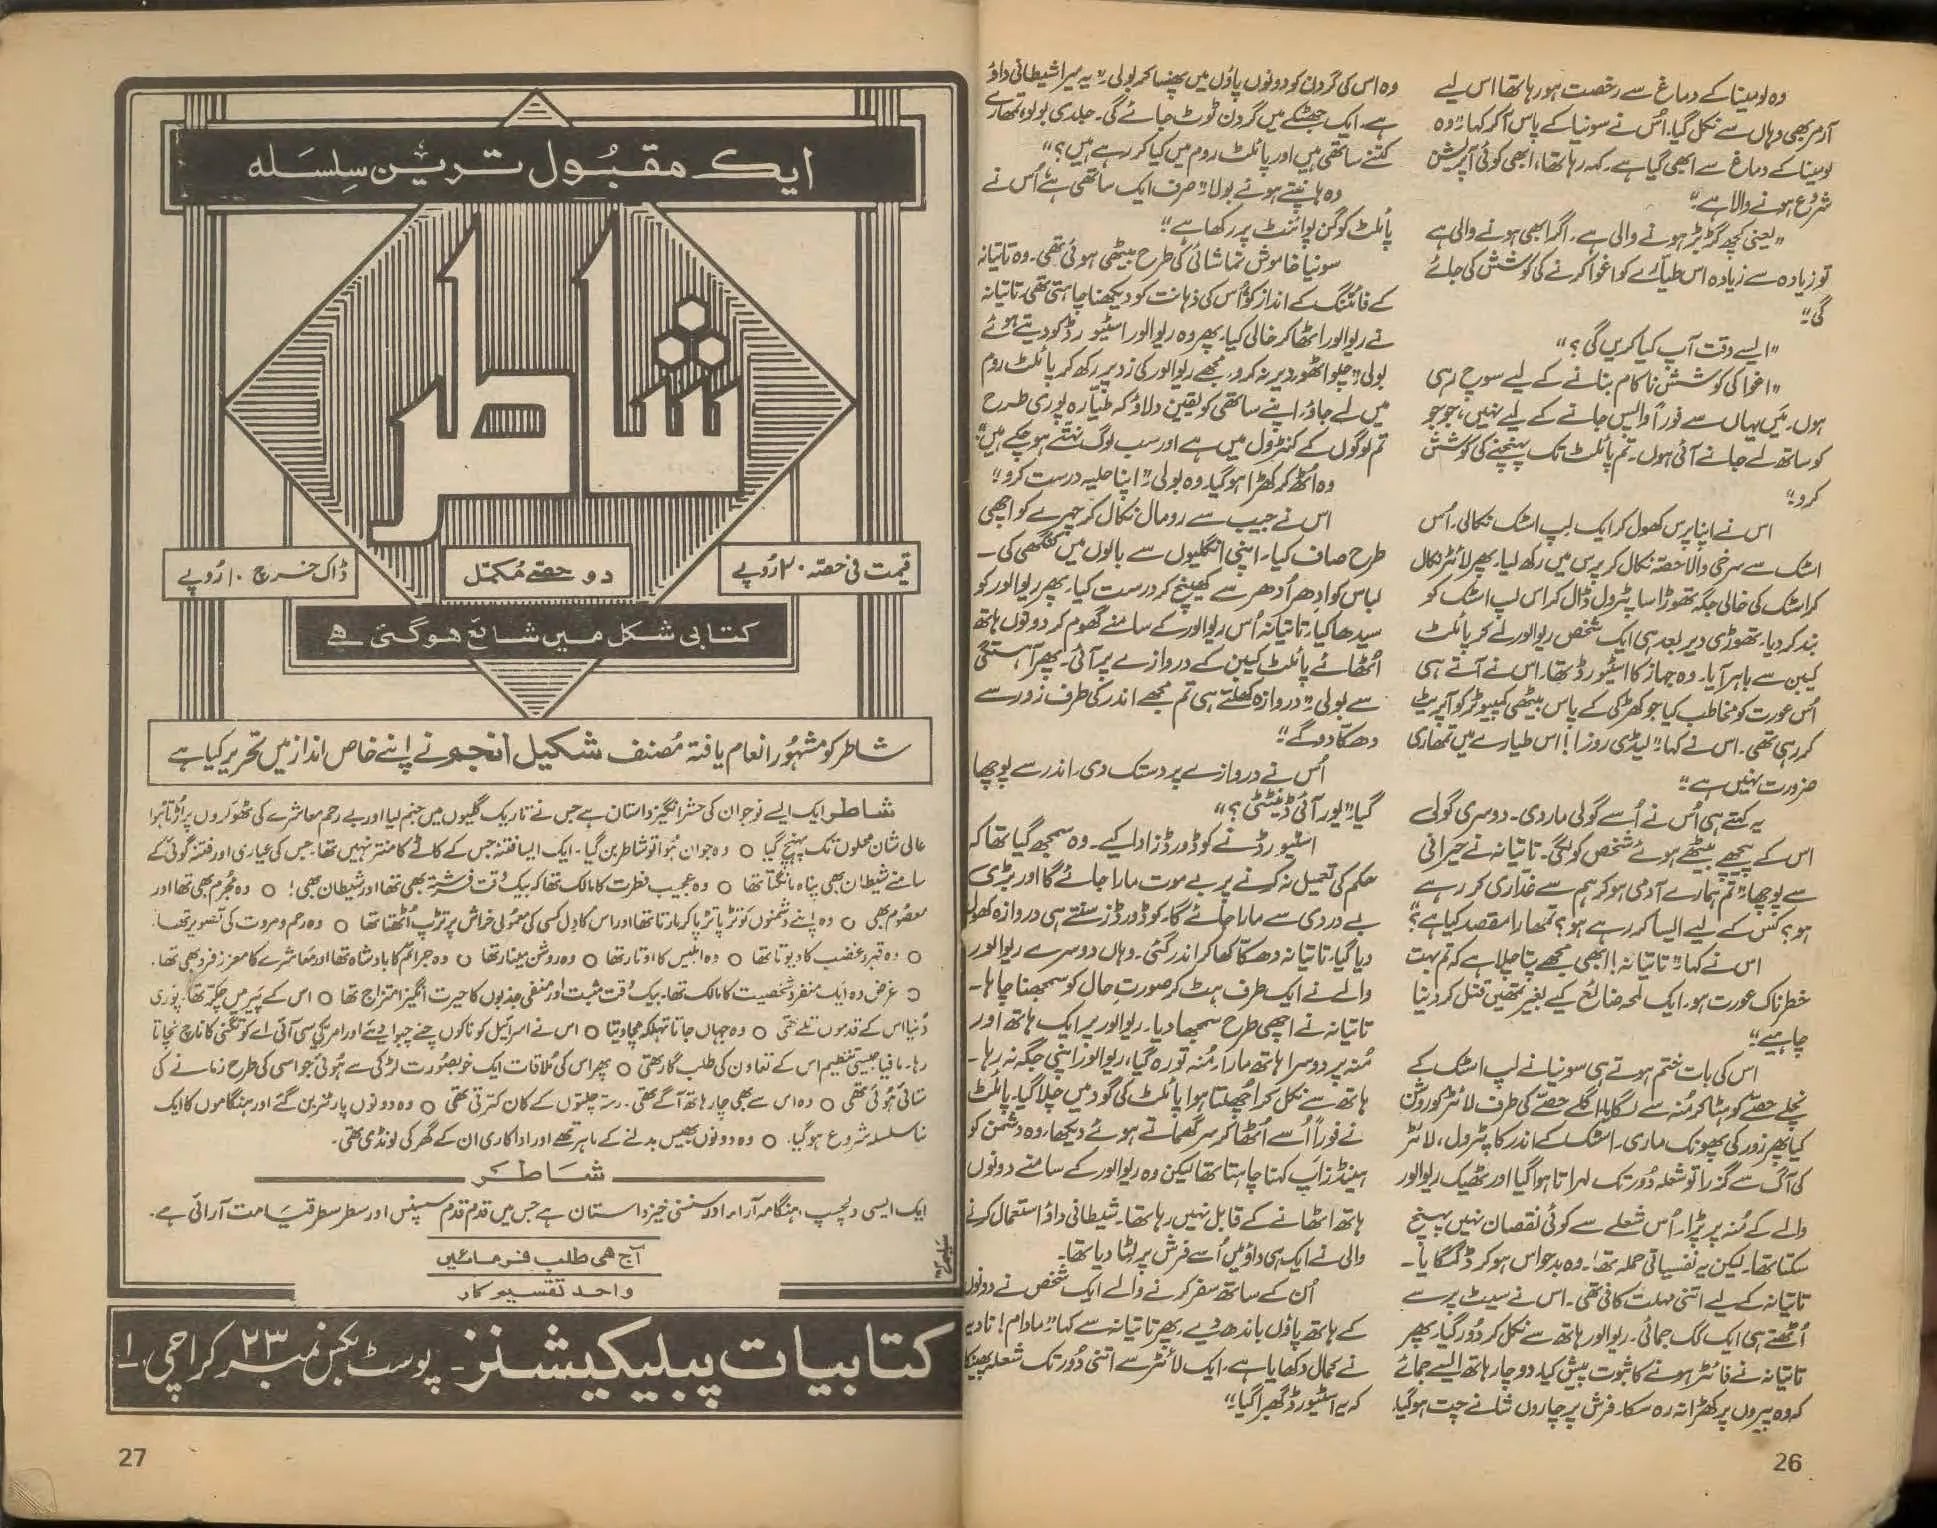 وہ لومینا کے دماغ سے رخصت ہو رہا تھا اس لیے
آرم بھی وہاں سے نکل گیا۔ اُس نے سونیا کے پاس آکر کہا: "وہ
لومینا کے دماغ سے ابھی گیا ہے۔ کہہ رہا تھا، ابھی کوئی آپریشن
شروع ہونے والا ہے"
"یعنی کچھ گڑبڑ ہونے والی ہے۔ اگر ابھی ہونے والی ہے
تو زیادہ سے زیادہ اس طیارے کو اغوا کرنے کی کوشش کی جائے
گی"
"ایسے وقت آپ کیا کریں گی؟"
"اغوا کی کوشش ناکام بنانے کے لیے سوچ رہی
ہوں۔ میں یہاں سے فوراً واپس جانے کے لیے نہیں، جوجو
کو ساتھ لے جانے آئی ہوں۔ تم پائلٹ تک پہنچنے کی کوشش
کرو"
اس نے اپنا پرس کھول کر ایک لپ اسٹک نکالی۔ اُس
اسٹک سے سرخی والا حصہ نکال کر پرس میں رکھ لیا۔ پھر لائٹر نکال
کر اسٹک کی خالی جگہ تھوڑا سا پٹرول ڈال کر اس لپ اسٹک کو
بند کر دیا۔ تھوڑی دیر بعد ہی ایک شخص ریوالور لے کر پائلٹ
کیبن سے باہر آیا۔ وہ جہاز کا اسٹیورڈ تھا۔ اس نے آتے ہی
اُس عورت کو مخاطب کیا جو کھڑکی کے پاس بیٹھی کمپیوٹر کو آپریٹ
کر رہی تھی۔ اس نے کہا: "لیڈی روزا! اس طیارے میں تمہاری
ضرورت نہیں ہے"
یہ کہتے ہی اُس نے اُسے گولی مار دی۔ دوسری گولی
اس کے پیچھے بیٹھے ہوئے شخص کو لگی۔ تاتیانہ نے حیرانی
سے پوچھا: "تم ہمارے آدمی ہو کر ہم سے غداری کر رہے
ہو؟ کس کے لیے ایسا کر رہے ہو؟ تمہارا مقصد کیا ہے؟"
اس نے کہا: "تاتیانہ! ابھی مجھے پتا چلا ہے کہ تم بہت
خطرناک عورت ہو۔ ایک لمحہ ضائع کیے بغیر تمہیں قتل کر دینا
چاہیے"
اس کی بات ختم ہوتے ہی سونیا نے لپ اسٹک کے
نچلے حصے کو ہٹا کر مُنہ سے لگایا۔ اگلے حصے کی طرف لائٹر کو روشن
کیا پھر زور کی پھونک ماری۔ اسٹک کے اندر کا پٹرول، لائٹر
کی آگ سے گزرا تو شعلہ دُور تک لہراتا ہوا گیا اور ٹھیک ریوالور
والے کے مُنہ پر پڑا۔ اُس شعلے سے کوئی نقصان نہیں پہنچ
سکتا تھا۔ لیکن یہ نفسیاتی حملہ تھا۔ وہ بدحواس ہو کر ڈگمگایا۔
تاتیانہ کے لیے اتنی مہلت کافی تھی۔ اس نے سیٹ پر سے
اُٹھتے ہی ایک کک جمائی۔ ریوالور ہاتھ سے نکل کر دُور گیا۔ پھر
تاتیانہ نے فائٹر ہونے کا ثبوت پیش کیا۔ دو چار ہاتھ ایسے جمائے
کہ وہ پیروں پر کھڑا نہ رہ سکا۔ فرش پر چاروں شانے چت ہو گیا۔
26
وہ اس کی گردن کو دونوں پاؤں میں پھنسا کر بولی: "یہ میرا شیطانی داؤ
ہے۔ ایک جھٹکے میں گردن ٹوٹ جائے گی۔ جلدی بولو تمہارے
کتنے ساتھی ہیں اور پائلٹ روم میں کیا کر رہے ہیں؟"
وہ ہانپتے ہوئے بولا: "صرف ایک ساتھی ہے، اُس نے
پائلٹ کو گن پوائنٹ پر رکھا ہے"
سونیا خاموش تماشائی کی طرح بیٹھی ہوئی تھی۔ وہ تاتیانہ
کے فائٹنگ کے انداز کو، اُس کی ذہانت کو دیکھنا چاہتی تھی۔ تاتیانہ
نے ریوالور اٹھا کر خالی کیا۔ پھر وہ ریوالور اسٹیورڈ کو دیتے ہوئے
بولی: "چلو اٹھو، دیر نہ کرو، مجھے ریوالور کی زد پر رکھ کر پائلٹ روم
میں لے جاؤ، اپنے ساتھی کو یقین دلاؤ کہ طیارہ پوری طرح
تم لوگوں کے کنٹرول میں ہے اور سب لوگ نہتے ہو چکے ہیں"
وہ اُٹھ کر کھڑا ہو گیا۔ وہ بولی: "اپنا حلیہ درست کرو"
اس نے جیب سے رومال نکال کر چہرے کو اچھی
طرح صاف کیا۔ اپنی انگلیوں سے بالوں میں کنگھی کی۔
لباس کو ادھر اُدھر سے کھینچ کر درست کیا۔ پھر ریوالور کو
سیدھا کیا۔ تاتیانہ اُس ریوالور کے سامنے گھوم کر دونوں ہاتھ
اٹھائے پائلٹ کیبن کے دروازے پر آئی۔ پھر آہستگی
سے بولی: "دروازہ کھلتے ہی تم مجھے اندر کی طرف زور سے
دھکا دو گے"
اُس نے دروازے پر دستک دی۔ اندر سے پوچھا
گیا: "یور آئی ڈینٹٹی؟"
اسٹیورڈ نے کوڈ ورڈز ادا کیے۔ وہ سمجھ گیا تھا کہ
حکم کی تعمیل نہ کرنے پر بے موت مارا جائے گا اور بڑی
بے دردی سے مارا جائے گا۔ کوڈ ورڈز سنتے ہی دروازہ کھول
دیا گیا۔ تاتیانہ دھکا کھا کر اندر گئی۔ وہاں دوسرے ریوالور
والے نے ایک طرف ہٹ کر صورتِ حال کو سمجھنا چاہا۔
تاتیانہ نے اچھی طرح سمجھا دیا۔ ریوالور پر ایک ہاتھ اور
مُنہ پر دوسرا ہاتھ مارا۔ مُنہ تو رہ گیا، ریوالور اپنی جگہ نہ رہا۔
ہاتھ سے نکل کر اُچھلتا ہوا پائلٹ کی گود میں چلا گیا۔ پائلٹ
نے فوراً اُسے اُٹھا کر سر گھماتے ہوئے دیکھا، وہ دشمن کو
ہینڈز اَپ کہنا چاہتا تھا لیکن وہ ریوالور کے سامنے دونوں
ہاتھ اٹھانے کے قابل نہیں رہا تھا۔ شیطانی داؤ استعمال کرنے
والی نے ایک ہی داؤ میں اُسے فرش پر لٹا دیا تھا۔
اُن کے ساتھ سفر کرنے والے ایک شخص نے دونوں
کے ہاتھ پاؤں باندھ دیے۔ پھر تاتیانہ سے کہا: "مادام! نادیہ
نے کمال دکھایا ہے۔ ایک لائٹر سے اتنی دُور تک شعلہ پھینکا
کہ یہ اسٹیورڈ گھبرا گیا"
ایک مقبُول ترین سِلسلہ
شاطر
قیمت فی حصہ ۲۰ رُوپے
دو حصّے مُکمّل
ڈاک خرچ ۱۰ رُوپے
کتابی شکل میں شائع ہو گئی ہے
شاطر کو مشہُور انعام یافتہ مُصنف شکیل انجم نے اپنے خاص انداز میں تحریر کیا ہے
شاطر ایک ایسے نوجوان کی حشر انگیز داستان ہے جس نے تاریک گلیوں میں جنم لیا اور بے رحم معاشرے کی ٹھوکروں پر اُڑتا ہُوا
عالی شان محلوں تک پہنچ گیا ○ وہ جوان ہُوا تو شاطر بن گیا۔ ایک ایسا فتنہ جس کے کاٹے کا منتر نہیں تھا۔ جس کی عیاری اور فتنہ گوئی کے
سامنے شیطان بھی پناہ مانگتا تھا ○ وہ عجیب فطرت کا مالک تھا کہ بیک وقت فرشتہ بھی تھا اور شیطان بھی! ○ وہ مُجرم بھی تھا اور
معصُوم بھی ○ وہ اپنے دشمنوں کو تڑپا تڑپا کر مارتا تھا اور اس کا دِل کسی کی معمُولی خراش پر تڑپ اُٹھتا تھا ○ وہ رحم و مروت کی تصویر تھا۔
○ وہ قہر و غضب کا دیوتا تھا ○ وہ ابلیس کا اوتار تھا ○ وہ روشن مینار تھا ○ وہ جرائم کا بادشاہ تھا اور معاشرے کا معزز فرد بھی تھا۔
○ غرض وہ ایک منفرد شخصیت کا مالک تھا۔ بیک وقت مثبت اور منفی جذبوں کا حیرت انگیز امتزاج تھا ○ اس کے پَیر میں چکر تھا۔ پُوری
دُنیا اس کے قدموں تلے تھی ○ وہ جہاں جاتا تہلکہ مچا دیتا ○ اس نے اسرائیل کو ناکوں چنے چبوا دیے اور امریکی سی آئی اے کو تگنی کا ناچ نچاتا
رہا۔ مافیا جیسی تنظیم اس کے تعاون کی طلب گار تھی ○ پھر اس کی مُلاقات ایک خوبصُورت لڑکی سے ہُوئی جو اسی کی طرح زمانے کی
ستائی ہُوئی تھی ○ وہ اس سے بھی چار ہاتھ آگے تھی۔ کے کان کترتی تھی ○ وہ دونوں پارٹنر بن گئے اور ہنگاموں کا ایک
نیا سلسلہ شروع ہو گیا۔ ○ وہ دونوں بھیس بدلنے کے ماہر تھے اور اداکاری ان کے گھر کی لونڈی تھی۔
شاطر
ایک ایسی دلچسپ، ہنگامہ آراء اور سنسنی خیز داستان ہے جس میں قدم قدم سسپنس اور سطر سطر قیامت آرائی ہے۔
آج ھی طلب فرمائیں
واحد تقسیم کار
کتابیات پبلیکیشنز ۔ پوسٹ بکس نمبر ۲۳ کراچی ۔ ۱
27